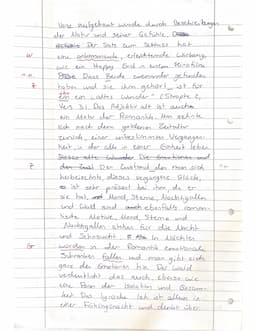 Verse aufgebaut wurde durch Beschreibungen
der Natur und seiner Gefühle.
Der Satz zum Schluss hat
W eine entspannende, erleichternde Wirkung,
wie ein Happy End in einem
Diese Beide zueinander gefunden
Z haben und sie ihm gehört, ist für
ihn ein „altes Wunder" (Strophe 2,
Vers 3). Das Adjektiv alt ist auch
ein Motiv der Romantik. Man sehnte
sich nach dem goldenen Zeitalter
zurück, einer unbestimmten Vergangen-
heit, in der alle in einer Einheit leben.
Z Der Zustand, den man sich
herbeisehnte, dieses vergangene Glück,
ist sehr präsent bei ihm, da er
sie hat. Mond, Sterne, Nachtigallen
und Wald sind auch ebenfalls roman-
tische Motive. Mond, Sterne und
Nachtigallen stehen für die Nacht
und Sehnsucht. In Nächten
G werden in der Romantik emotionale
Schranken fallen und man gibt sich
ganz den Emotionen hin. Der Wald
verdeutlicht dies auch, ebenso wie
eine Form der Isolation und Gesamt-
heit. Das lyrische Ich ist allein in
einer Frühlingsnacht und denkt über